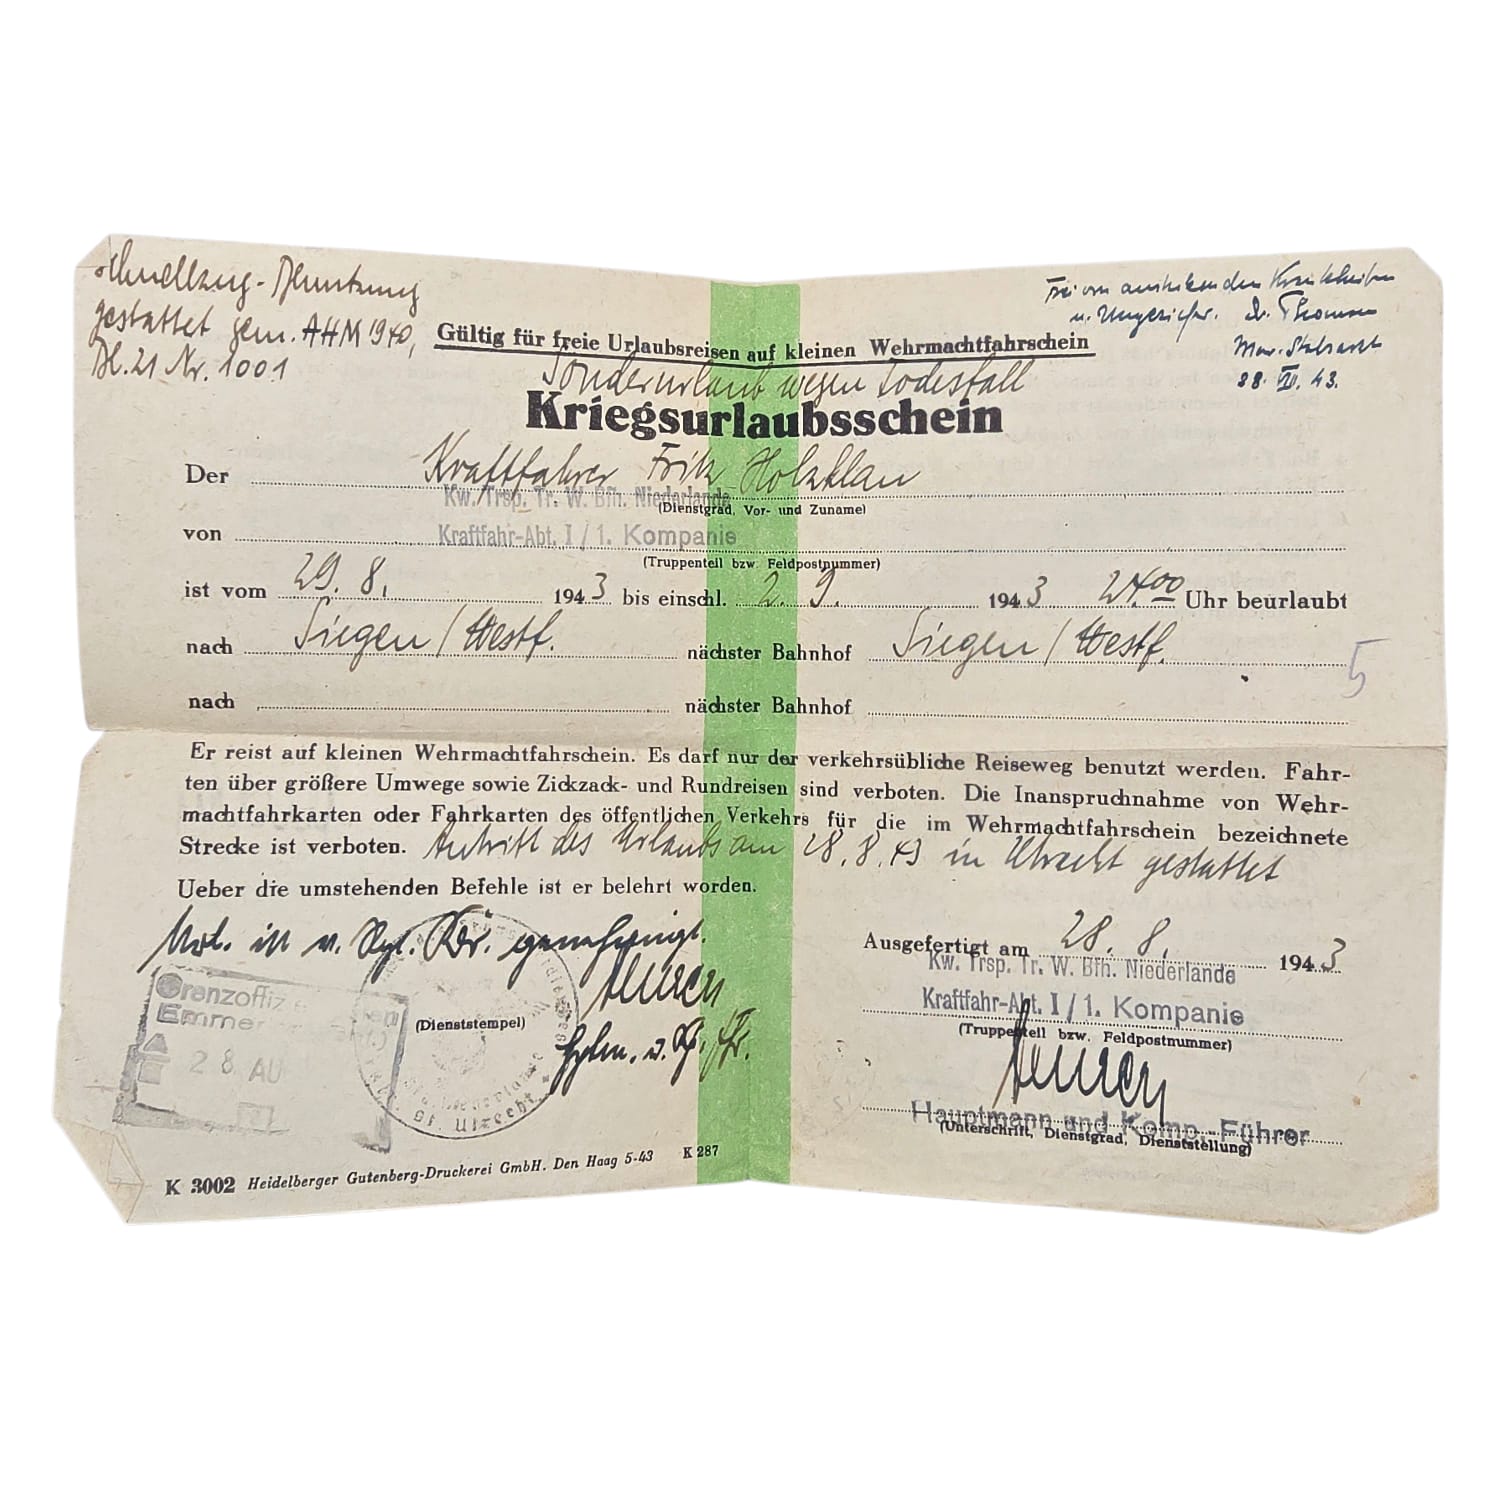 Schnellzug-Benutzung
gestattet gem. AHM 1940,
Bl. 21 Nr. 1001
Frei von ansteckenden Krankheiten
u. Ungeziefer. Dr. Thomsen
Mar. Stabsarzt
28. VIII. 43.
Gültig für freie Urlaubsreisen auf kleinen Wehrmachtfahrschein
Sonderurlaub wegen Todesfall
Kriegsurlaubsschein
Der Kraftfahrer Fritz Holzklau
Kw. Trsp. Tr. W. Bfh. Niederlande
(Dienstgrad, Vor- und Zuname)
von Kraftfahr-Abt. I / 1. Kompanie
(Truppenteil bzw. Feldpostnummer)
ist vom 29. 8. 1943 bis einschl. 2. 9. 1943 24.00 Uhr beurlaubt
nach Siegen / Westf. nächster Bahnhof Siegen / Westf.
5
nach nächster Bahnhof
Er reist auf kleinen Wehrmachtfahrschein. Es darf nur der verkehrsübliche Reiseweg benutzt werden. Fahr-
ten über größere Umwege sowie Zickzack- und Rundreisen sind verboten. Die Inanspruchnahme von Wehr-
machtfahrkarten oder Fahrkarten des öffentlichen Verkehrs für die im Wehrmachtfahrschein bezeichnete
Strecke ist verboten. Antritt des Urlaubs am 28. 8. 43 in Utrecht gestattet
Ueber die umstehenden Befehle ist er belehrt worden.
genehmigt.
Ausgefertigt am 28. 8. 1943
Kw. Trsp. Tr. W. Bfh. Niederlande
Kraftfahr-Abt. I / 1. Kompanie
(Truppenteil bzw. Feldpostnummer)
Hauptmann und Komp.-Führer
(Unterschrift, Dienstgrad, Dienststellung)
Grenzoffiz
Emmer
28 AU
(Dienststempel)
Utrecht
K 3002 Heidelberger Gutenberg-Druckerei GmbH. Den Haag 5-43 K 287